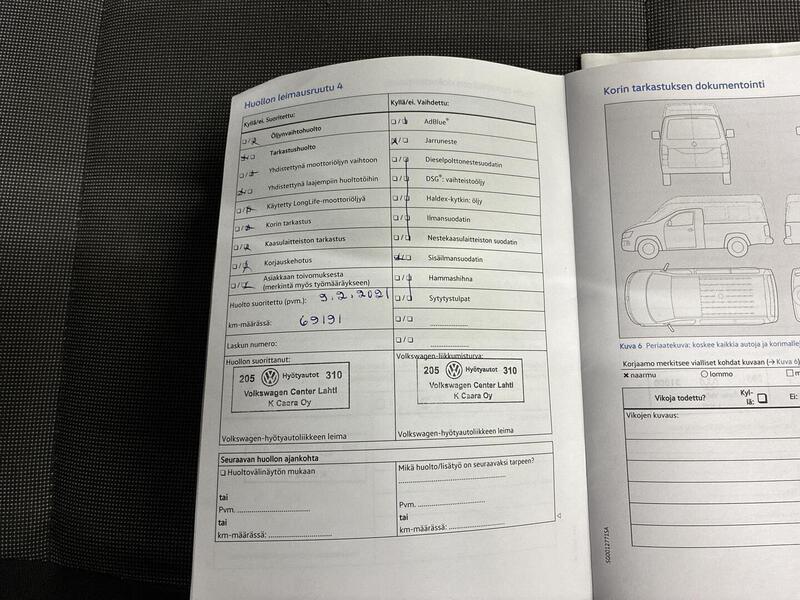 Huollon leimausruutu 4
Kyllä/ei. Suoritettu:
Öljynvaihtohuolto
Tarkastushuolto
Yhdistettynä moottoriöljyn vaihtoon
Yhdistettynä laajempiin huoltotöihin
Käytetty LongLife-moottoriöljyä
Korin tarkastus
Kaasulaitteiston tarkastus
Korjauskehotus
Asiakkaan toivomuksesta
(merkintä myös työmääräykseen)
Huolto suoritettu (pvm.): 9.2.2021
km-määrässä: 69191
Laskun numero:
Huollon suorittanut:
205 Hyötyautot 310
Volkswagen Center Lahti
K Caara Oy
Volkswagen-hyötyautoliikkeen leima
Kyllä/ei. Vaihdettu:
AdBlue®
Jarruneste
Dieselpolttonestesuodatin
DSG®: vaihteistoöljy
Haldex-kytkin: öljy
Ilmansuodatin
Nestekaasulaitteiston suodatin
Sisäilmansuodatin
Hammashihna
Sytytystulpat
Volkswagen-liikkumisturva:
205 Hyötyautot 310
Volkswagen Center Lahti
K Caara Oy
Volkswagen-hyötyautoliikkeen leima
Seuraavan huollon ajankohta
Huoltovälinäytön mukaan
tai
Pvm.
tai
km-määrässä:
Mikä huolto/lisätyö on seuraavaksi tarpeen?
Pvm.
tai
km-määrässä:
Korin tarkastuksen dokumentointi
Kuva 6 Periaatekuva: koskee kaikkia autoja ja
Korjaamo merkitsee vialliset kohdat kuvaan (→ Kuva 6)
naarmu lommo
Vikoja todettu? Kyl-
lä: Ei:
Vikojen kuvaus: